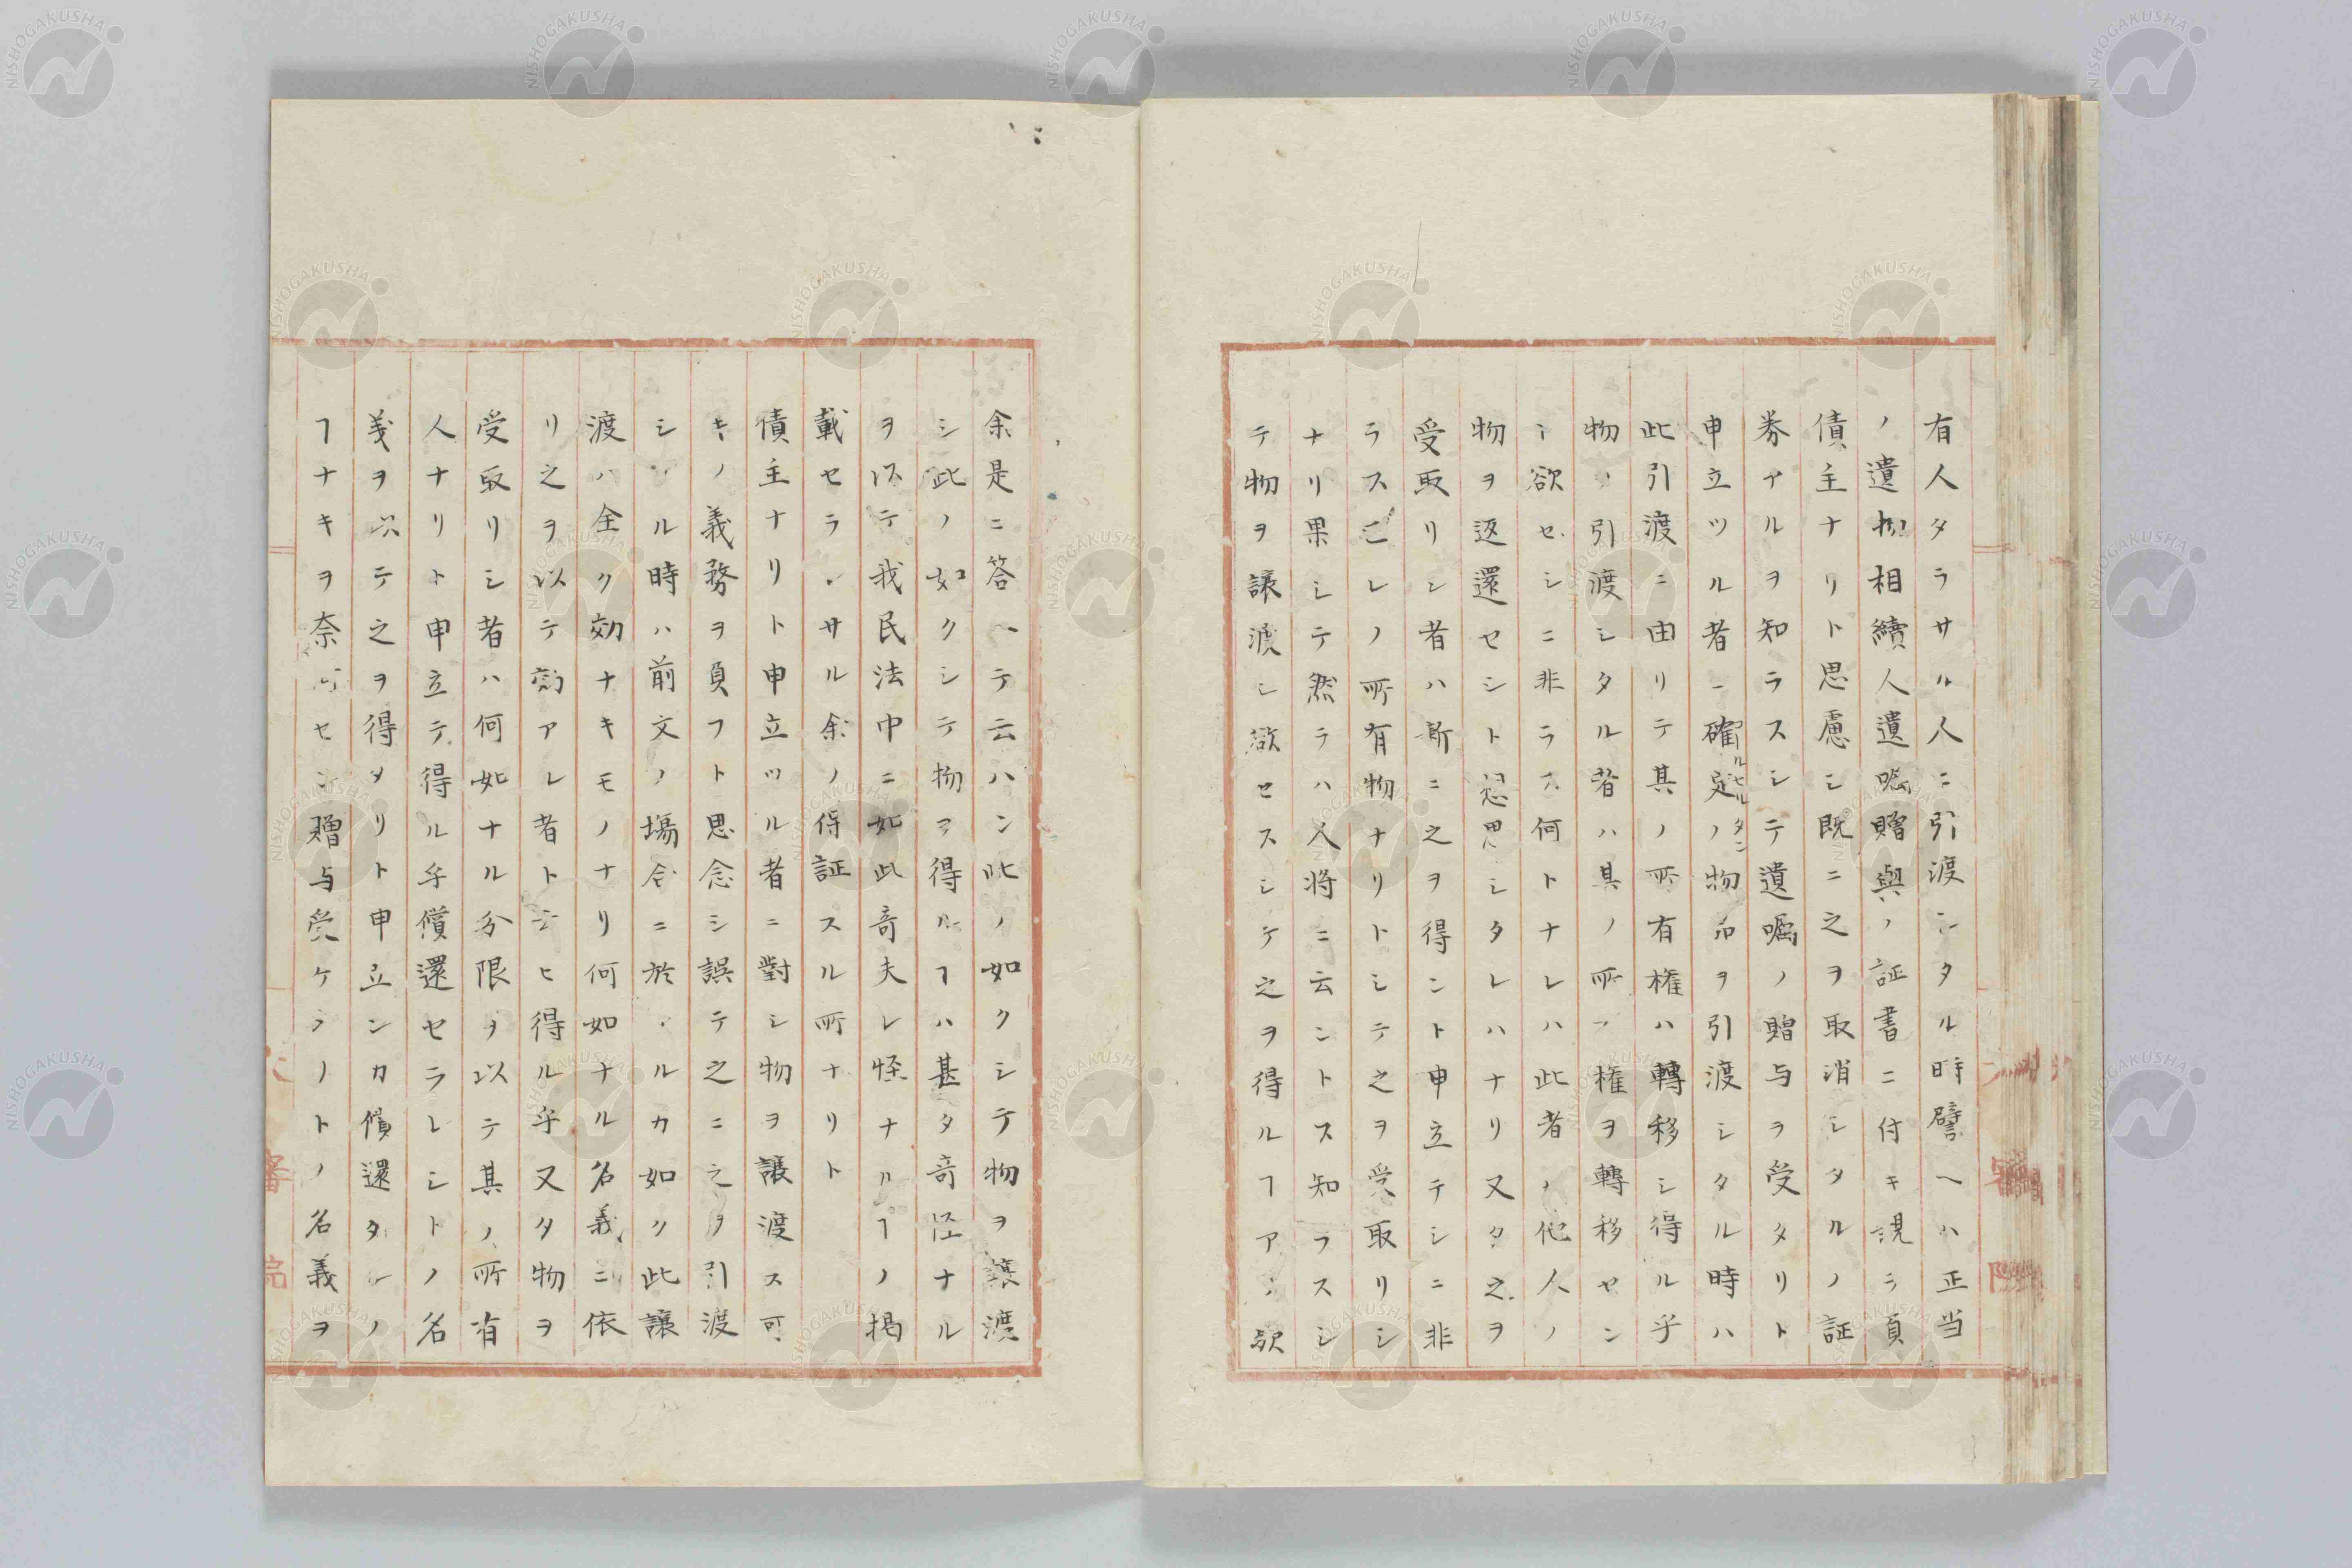 有人タラサル人ニ引渡シタル時譬ヘハ正当
ノ遺物相續人遺嘱贈與ノ証書ニ付キ誤ラ負
債主ナリト思慮シ既ニ之ヲ取消シタルノ証
券アルヲ知ラスシテ遺嘱ノ贈与ヲ受タリト
申立ツル者ニ確定ノ物品ヲ引渡シタル時ハ
此引渡ニ由リテ其ノ所有権ハ轉移シ得ル乎
物ヲ引渡シタル者ハ其ノ所有権ヲ轉移セン
ト欲セシニ非ラス何トナレハ此者ハ他人ノ
物ヲ返還セシト思シタレハナリ又タ之ヲ
受取リシ者ハ新ニ之ヲ得ント申立テシニ非
ラス己レノ所有物ナリトシテ之ヲ受取リシ
ナリ果シテ然ラハ人将ニ云ントス知ラスシ
テ物ヲ譲渡シ欲セスシテ之ヲ得ルヿアル歟
余是ニ答ヘテ云ハン此ノ如クシテ物ヲ譲渡
シ此ノ如クシテ物ヲ得ルヿハ甚タ奇怪ナル
ヲ以テ我民法中ニ如此奇夫レ怪ナルヿノ掲
載セラレサル余ノ保証スル所ナリト
債主ナリト申立ツル者ニ對シ物ヲ譲渡ス可
キノ義務ヲ負フト思念シ誤テ之ニ之ヲ引渡
シタル時ハ前文ノ場合ニ於ケルカ如ク此譲
渡ハ全ク効ナキモノナリ何如ナル名義ニ依
リ之ヲ以テ効アレ者ト云ヒ得ル乎又タ物ヲ
受取リシ者ハ何如ナル分限ヲ以テ其ノ所有
人ナリト申立テ得ル乎償還セラレシトノ名
義ヲ以テ之ヲ得タリト申立ンカ償還タルノ
ヿナキヲ奈何セン贈与受ケシノトノ名義ヲ